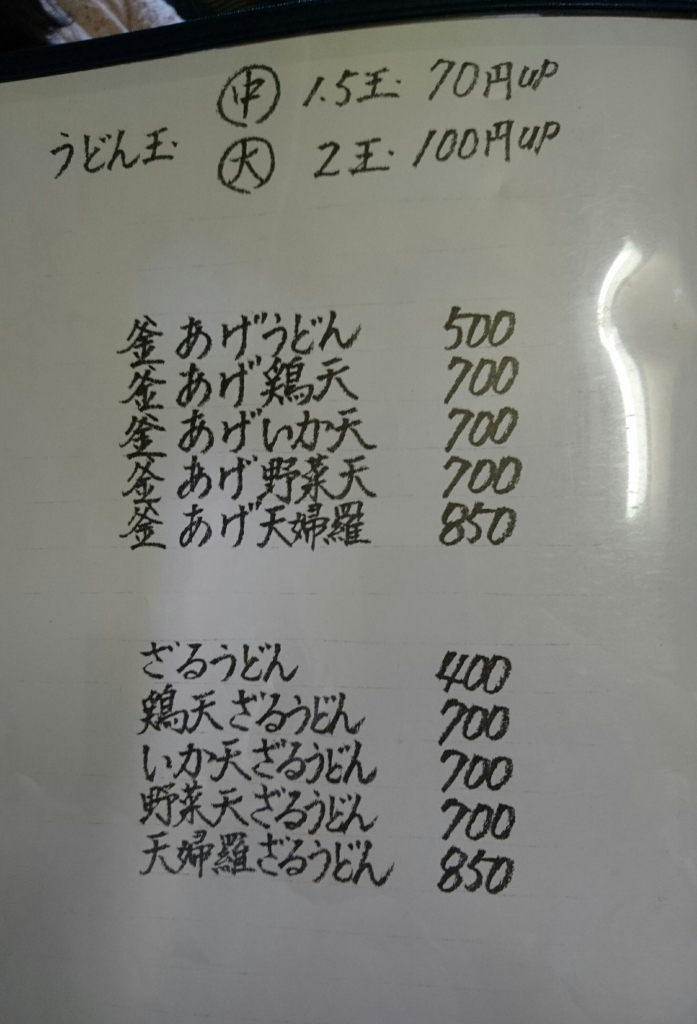 ㊥ 1.5玉 70円UP
うどん玉 ㊤大 2玉 100円UP
釜あげうどん 500
釜あげ鶏天 700
釜あげいか天 700
釜あげ野菜天 700
釜あげ天婦羅 850
ざるうどん 400
鶏天ざるうどん 700
いか天ざるうどん 700
野菜天ざるうどん 700
天婦羅ざるうどん 850